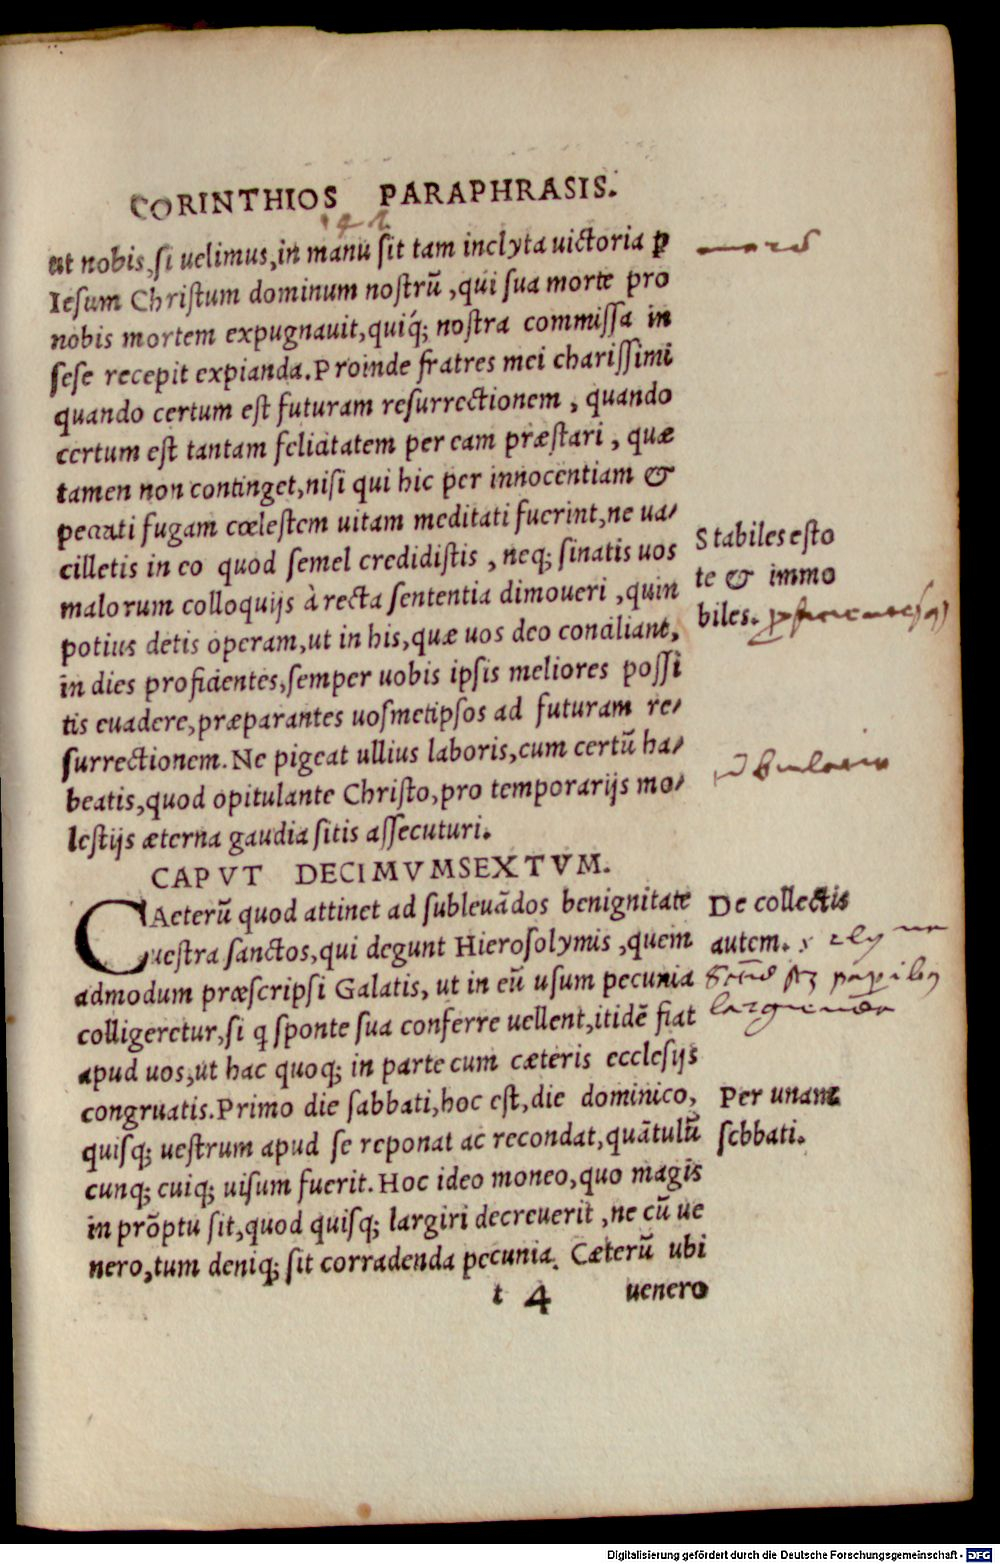 CORINTHIOS PARAPHRASIS.
ut nobis, si uelimus, in manu sit tam inclyta uictoria ꝑ
Iesum Christum dominum nostrū, qui sua morte pro
nobis mortem expugnauit, quiq́; nostra commissa in
sese recepit expianda. Proinde fratres mei charissimi
quando certum est futuram resurrectionem, quando
certum est tantam felicitatem per eam præstari, quæ
tamen non continget, nisi qui hic per innocentiam &
peccati fugam cœlestem uitam meditati fuerint, ne ua/
cilletis in eo quod semel credidistis, neq; sinatis uos
malorum colloquijs à recta sententia dimoueri, quin
potius detis operam, ut in his, quæ uos deo conciliant,
in dies proficientes, semper uobis ipsis meliores possi
tis euadere, præparantes uosmetipsos ad futuram re/
surrectionem. Ne pigeat ullius laboris, cum certū ha/
beatis, quod opitulante Christo, pro temporarijs mo/
lestijs æterna gaudia sitis assecuturi.
Stabiles esto
te & immo
biles.
CAPVT DECIMVMSEXTVM.
CAeterū quod attinet ad subleuādos benignitate
uestra sanctos, qui degunt Hierosolymis, quem
admodum præscripsi Galatis, ut in eū usum pecunia
colligeretur, si q sponte sua conferre uellent, itidē fiat
apud uos, ut hac quoq; in parte cum cæteris ecclesijs
congruatis. Primo die sabbati, hoc est, die dominico,
quisq; uestrum apud se reponat ac recondat, quātulū
cunq; cuiq; uisum fuerit. Hoc ideo moneo, quo magis
in prōptu sit, quod quisq; largiri decreuerit, ne cū ue
nero, tum deniq; sit corradenda pecunia. Cæterū ubi
De collectis
autem.
Per unam
sabbati.
t 4 uenero
Digitalisierung gefördert durch die Deutsche Forschungsgemeinschaft - DFG